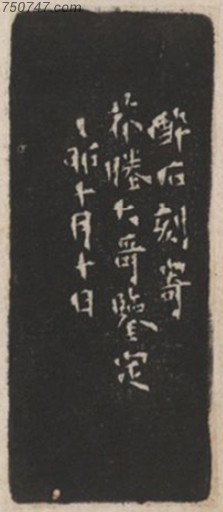 750747.com
醉石刻寄
塍大哥鑒定
乙卯十月十日